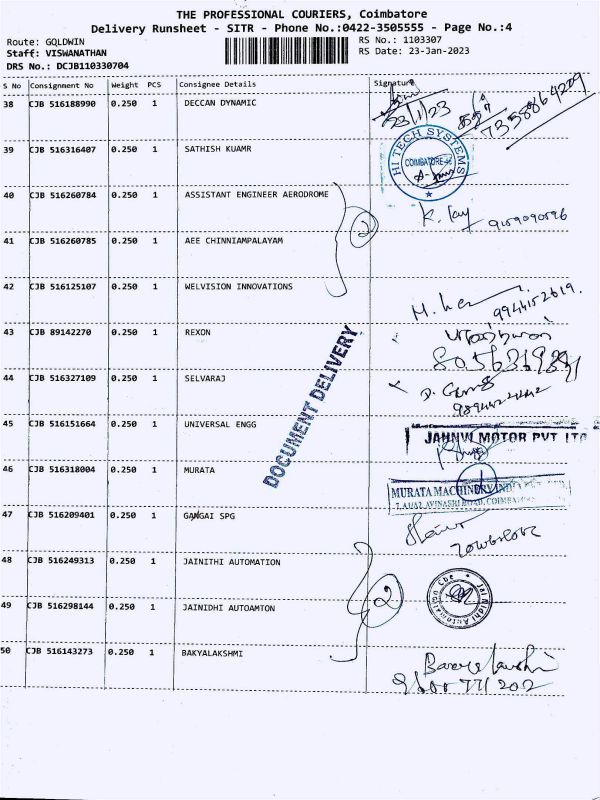 THE PROFESSIONAL COURIERS, Coimbatore
Delivery Runsheet - SITR - Phone No.:0422-3505555 - Page No.:4
Route: GOLDWIN
RS No.: 1103307
Staff: VISWANATHAN
RS Date: 23-Jan-2023
DRS No.: DCJB110330704
S No Consignment No Weight PCS Consignee Details Signature
38 CJB 516188990 0.250 1 DECCAN DYNAMIC
23/1/23
7358864209
39 CJB 516316407 0.250 1 SATHISH KUAMR
HI TECH SYSTEMS
COIMBATORE
40 CJB 516260784 0.250 1 ASSISTANT ENGINEER AERODROME
2
9159090596
41 CJB 516260785 0.250 1 AEE CHINNIAMPALAYAM
42 CJB 516125107 0.250 1 WELVISION INNOVATIONS
9944152619.
43 CJB 89142270 0.250 1 REXON
DOCUMENT DELIVERY
44 CJB 516327109 0.250 1 SELVARAJ
45 CJB 516151664 0.250 1 UNIVERSAL ENGG
JAHNVI MOTOR PVT LTD
46 CJB 516318004 0.250 1 MURATA
MURATA MACHINERY INDIA
AVINASHI ROAD, COIMBATORE
47 CJB 516209401 0.250 1 GANGAI SPG
48 CJB 516249313 0.250 1 JAINITHI AUTOMATION
2
Jai Nidhi Automation Cbe
49 CJB 516298144 0.250 1 JAINIDHI AUTOAMTON
50 CJB 516143273 0.250 1 BAKYALAKSHMI